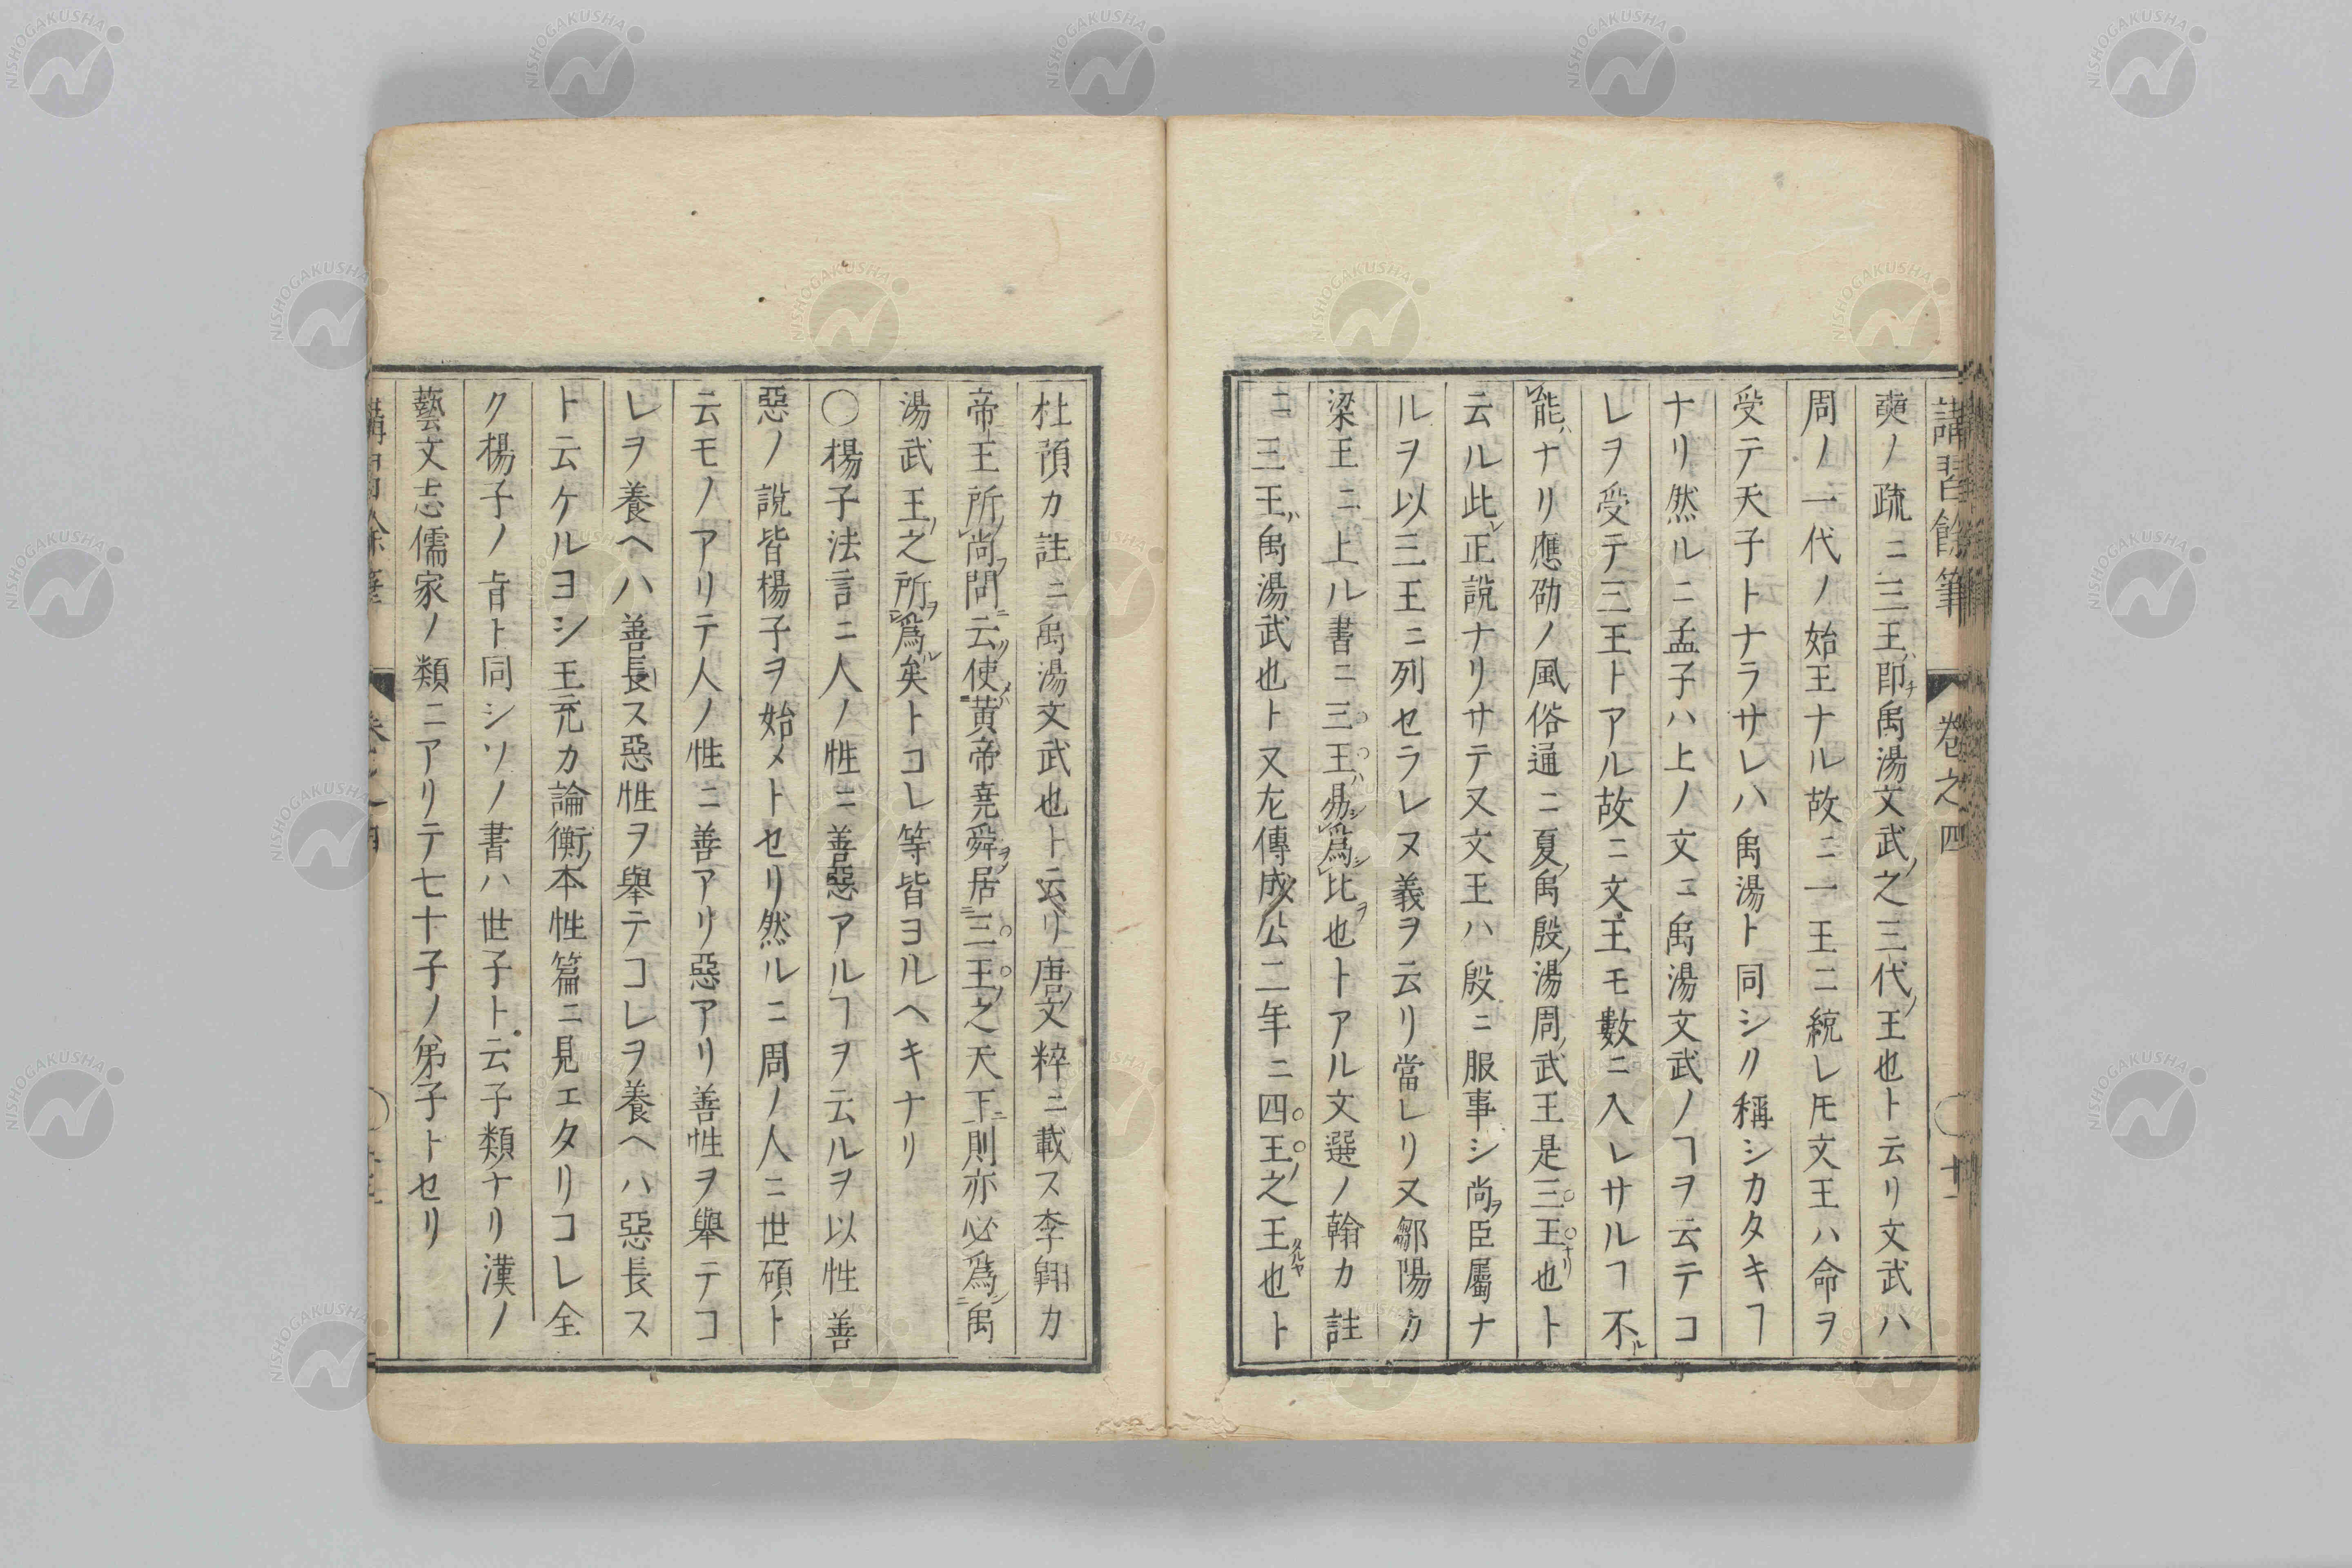 講習餘筆
卷之四
奭ノ疏ニ三王ハ即チ禹湯文武ノ之三代ノ王也ト云リ文武ハ
周ノ一代ノ始王ナル故ニ一王ニ統レ𪜈文王ハ命ヲ
受テ天子トナラサレハ禹湯ト同シク稱シカタキヿ
ナリ然ルニ孟子ハ上ノ文ニ禹湯文武ノヿヲ云テコ
レヲ受テ三王トアル故ニ文王モ數ニ入レサルヿ不ル
レ能ハナリ應劭ノ風俗通ニ夏ノ禹殷ノ湯周ノ武王是三王ナリ也ト
云ル此レ正説ナリサテ又文王ハ殷ニ服事シ尚ヲ臣屬ナ
ルヲ以三王ニ列セラレヌ義ヲ云リ當レリ又鄒陽カ
梁王ニ上ル書ニ三王ハ易シレ爲シレ比ヲ也トアル文選ノ翰カ註
ニ三王ハ禹湯武也ト又左傳成公二年ニ四王ノ之王タルヤ也ト
杜預カ註ニ禹湯文武也ト云リ唐文粹ニ載ス李翺カ
帝王所ノレ尚フ問ニ云リ使メハ二黄帝堯舜ヲ居ヲ二三王ノ之天下ニ則亦必爲シ二禹
湯武王ノ之所ヲ一レ爲ル矣トコレ等皆ヨルヘキナリ
〇楊子法言ニ人ノ性ニ善惡アルヿヲ云ルヲ以性善
惡ノ説皆楊子ヲ始メトセリ然ルニ周ノ人ニ世碩ト
云モノアリテ人ノ性ニ善アリ惡アリ善性ヲ舉テコ
レヲ養ヘハ善長ス惡性ヲ舉テコレヲ養ヘハ惡長ス
ト云ケルヨシ王充カ論衡ノ本性篇ニ見エタリコレ全
ク楊子ノ旨ト同シソノ書ハ世子ト云子類ナリ漢ノ
藝文志儒家ノ類ニアリテ七十子ノ弟子トセリ